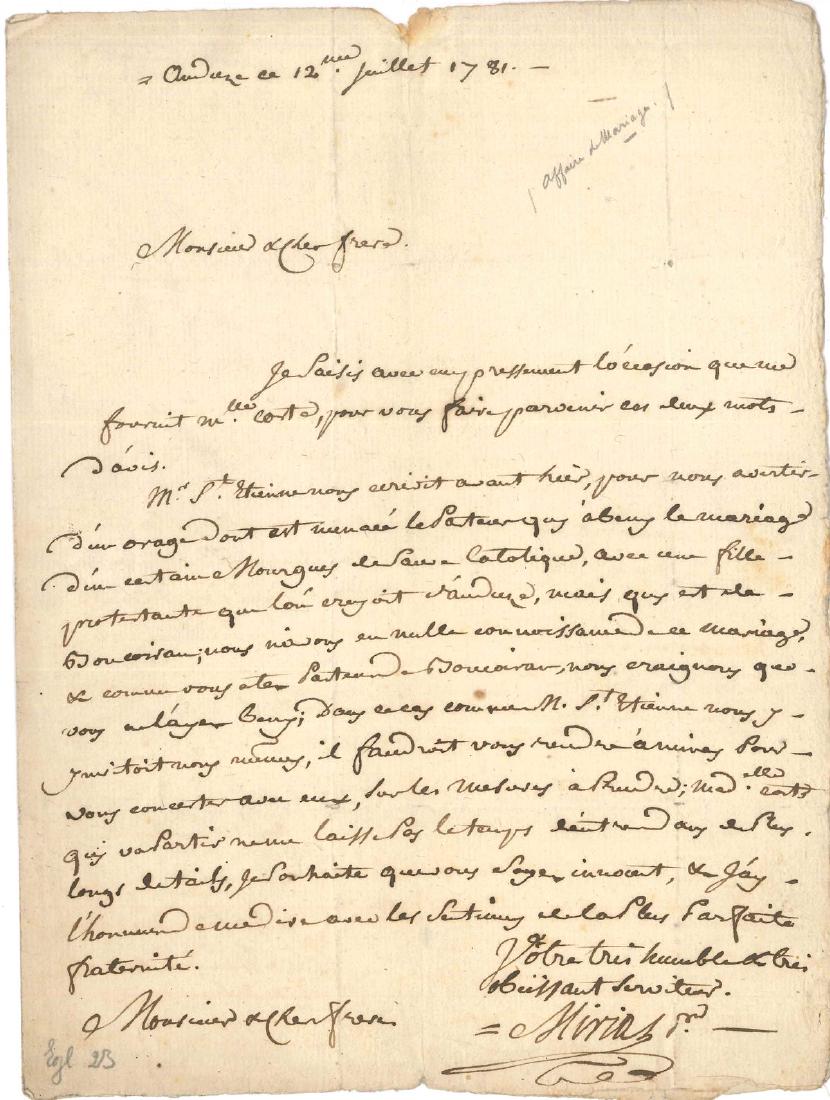 = Anduze ce 12me juillet 1781. —
/ Affaire de Mariage. /
Monsieur & cher frere.
Je Saisis avec empressement l'óccasion que me
fournit mlle corte, pour vous faire parvenir ces deux mots
d'ávis.
Mr St Etienne nous ecrivit avant hier, pour nous avertir
d'ún orage dont est menacé le Pasteur quy á beny le mariage
d'ún certain Mourgues de Sauve Catolique, avec une fille
protestante que l'ón croyoit d'ánduze, mais quy est de
Boucoiran; nous n'ávons eu nulle connoissance de ce mariage,
& comme vous etes Pasteur de Boucoiran, nous craignons que
vous ne l'áyez beny; Dans ce cas comme M. St Etienne nous y
invitoit nous mêmes, il faudroit vous rendre á nimes Pour
vous concerter avec eux, Sur les mesures á Prendre; madelle corte
quy va Partir ne me laisse Pas le temps d'éntrer dans de Plus
longs details, Je Souhaite que vous Soyez innocent, & J'áy
l'honneur de me dire avec les Sentimens de la Plus Parfaite
fraternité.
Vôtre tres humble & tres
obeissant Serviteur.
Monsieur & cher frere
= Mirial pr —
Egl 2B